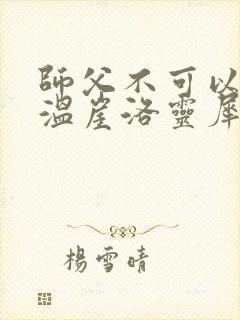 師父不可以
溫崖洛靈犀
楊雪晴